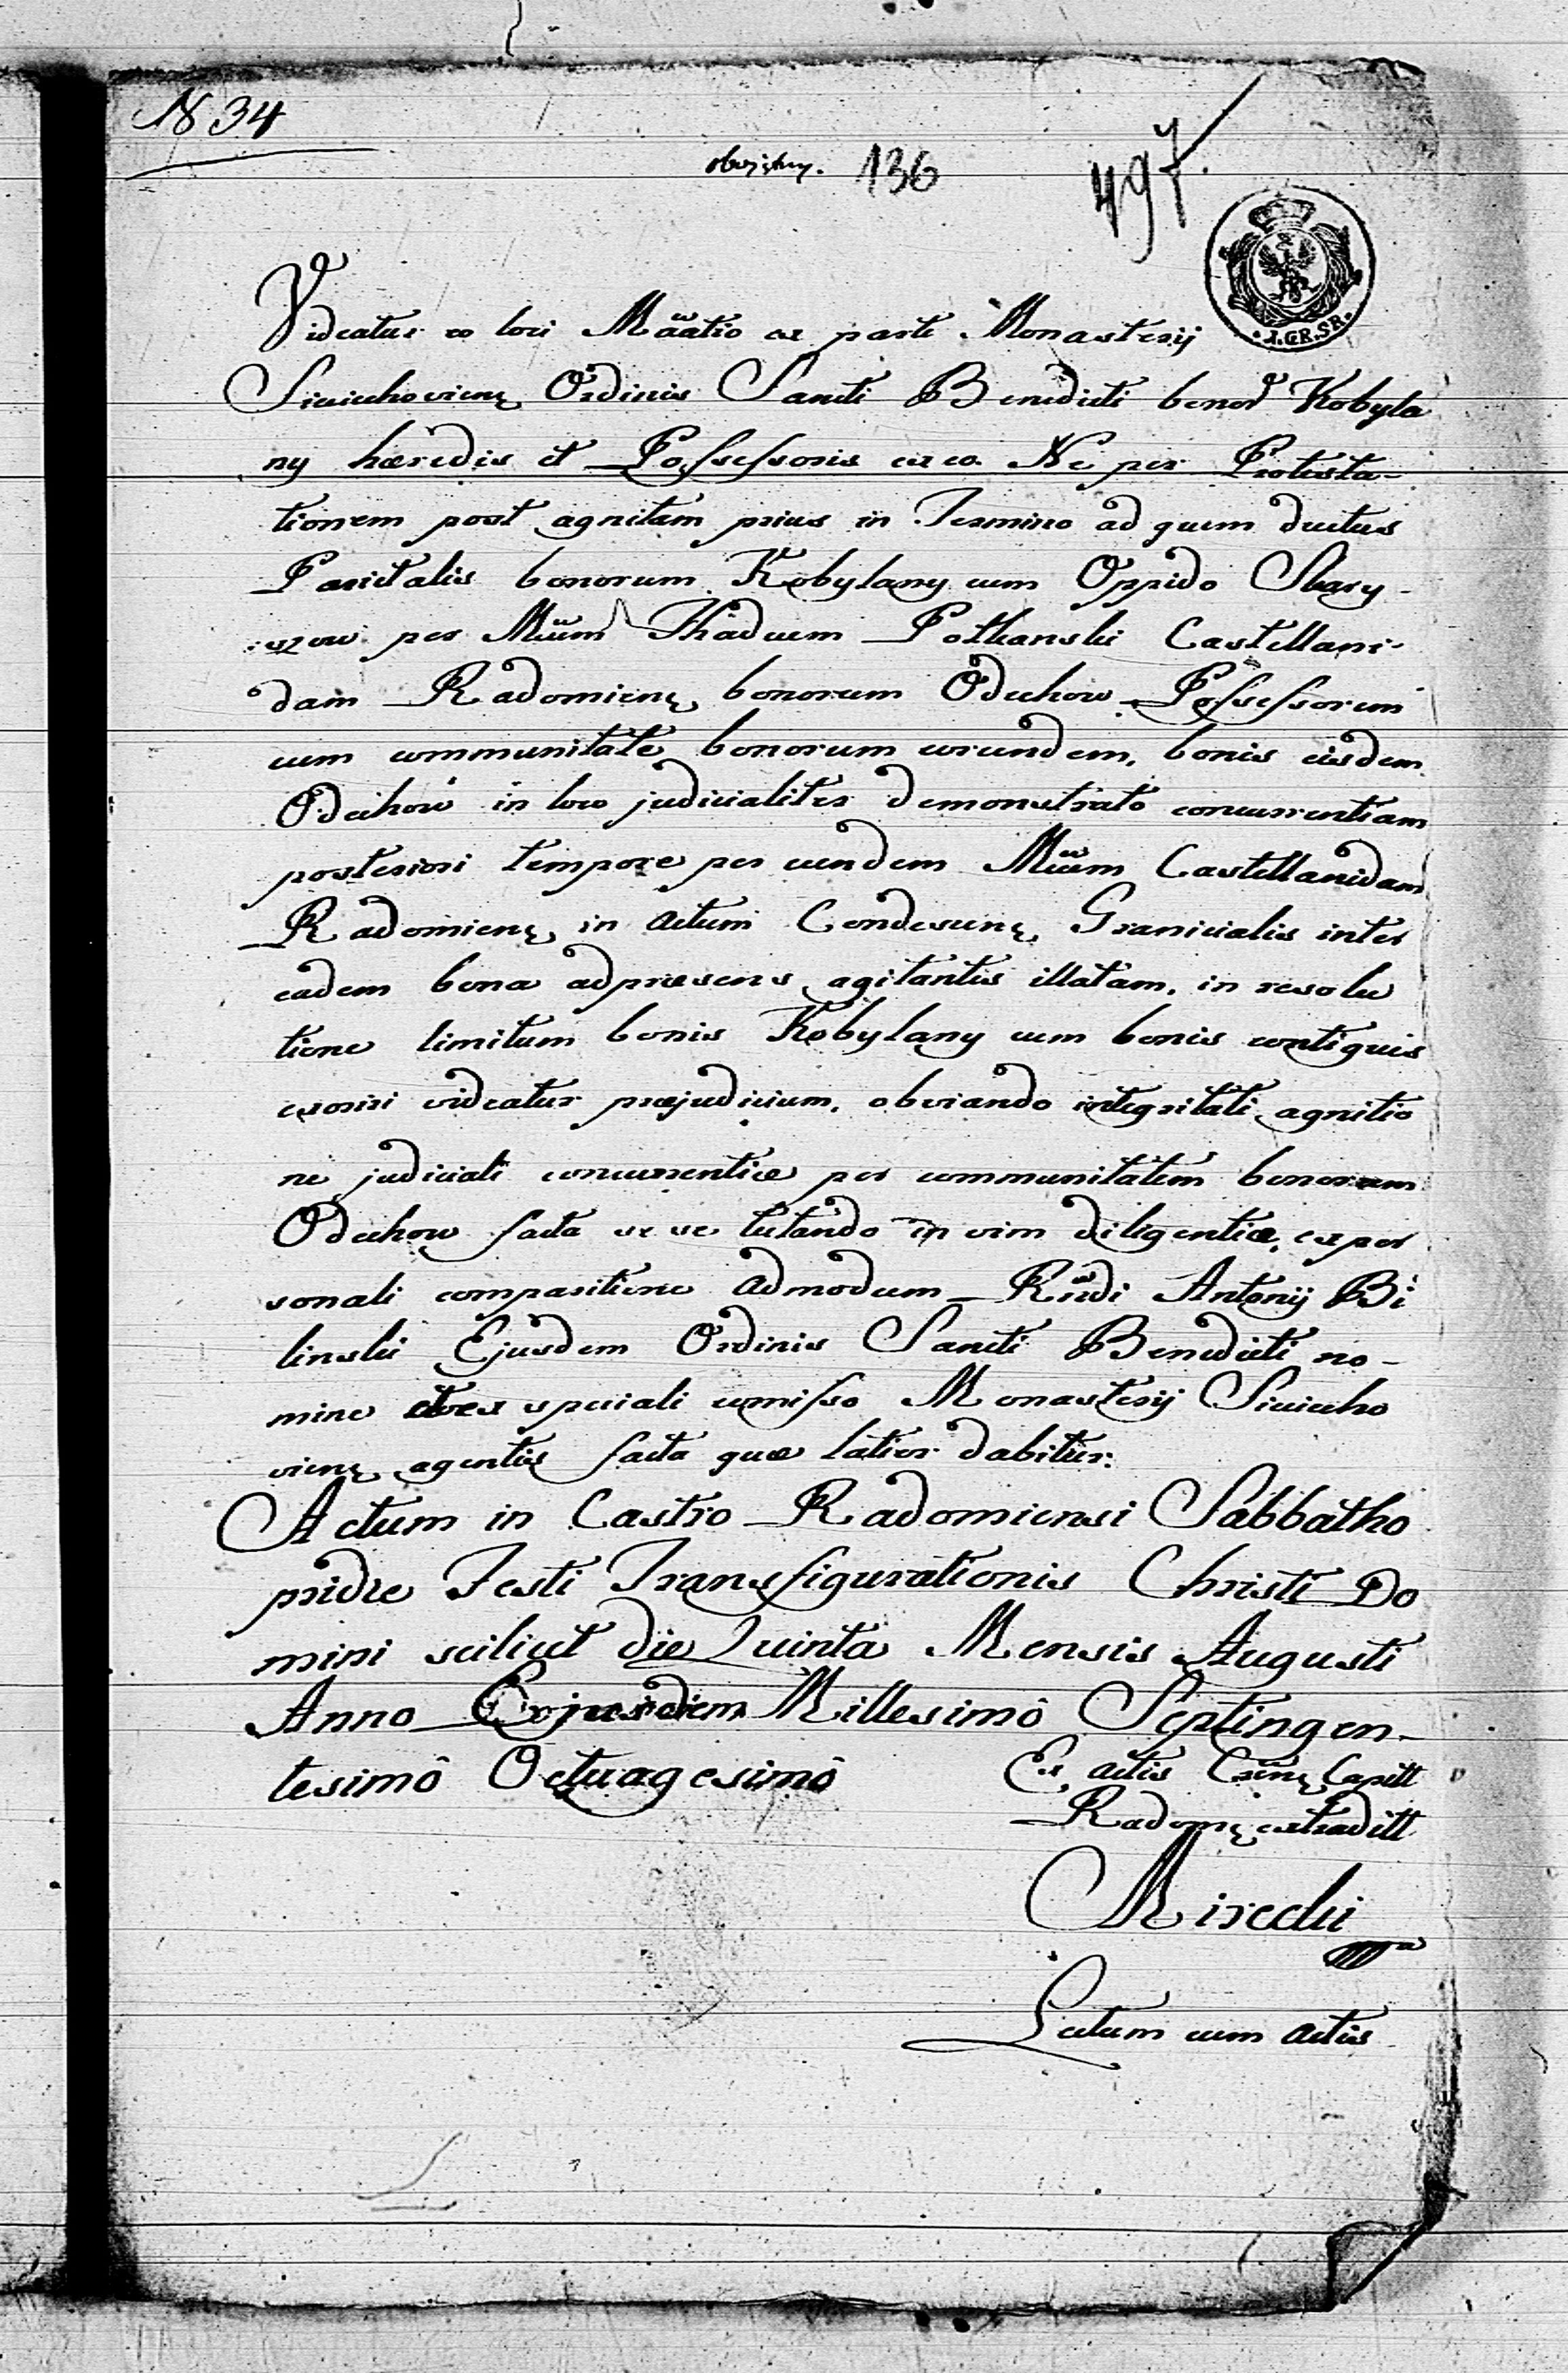 N 34
136
497.
J.GR.SR.
Videatur eo loci Mãatio ex parte Monasterij
Sieciechoviens Ordinis Sancti Benedicti bonor Kobyla
ny hæredis et Possessoris ex eo. Ne per Protesta-
tionem post agnitam prius in Termino ad quem ductus
Parietalis bonorum Kobylany cum Oppido Skary-
szew per Mcum Thadeum Potkanski Castellani-
dam Radomiens bonorum Oduchow Possessorem
cum communitate bonorum eorundem, bonis eisdem
Oduchow in loco judicialiter demonstrato concurrentiam
posteriori tempore per eundem Mcum Castellanidam
Radomiens in actum Condescens Granicialis inter
eadem bona adpræsens agitantis illatam, in resolu
tione limitum bonis Kobylany cum bonis contiguis
exoriri videatur præjudicium, obviando integritati agnitio
ne judiciali concurrentiæ per communitatem bonorum
Oduchow facta se se tutando in vim diligentiæ, ex per
sonali comparitione admodum Rndi Antonij Bi
linski Ejusdem Ordinis Sancti Benedicti no-
mine speciali comisso Monasterij Sieciecho
viens agentis facta quæ latior dabitur.
Actum in Castro Radomiensi Sabbatho
pridie Festi Transfigurationis Christi Do
mini scilicet die Quinta Mensis Augusti
Anno Ejusdem Millesimô Septingen-
tesimô Octuagesimô
Ex actis Capitt
Radoms extraditt
Mirecki
Lectum cum actis